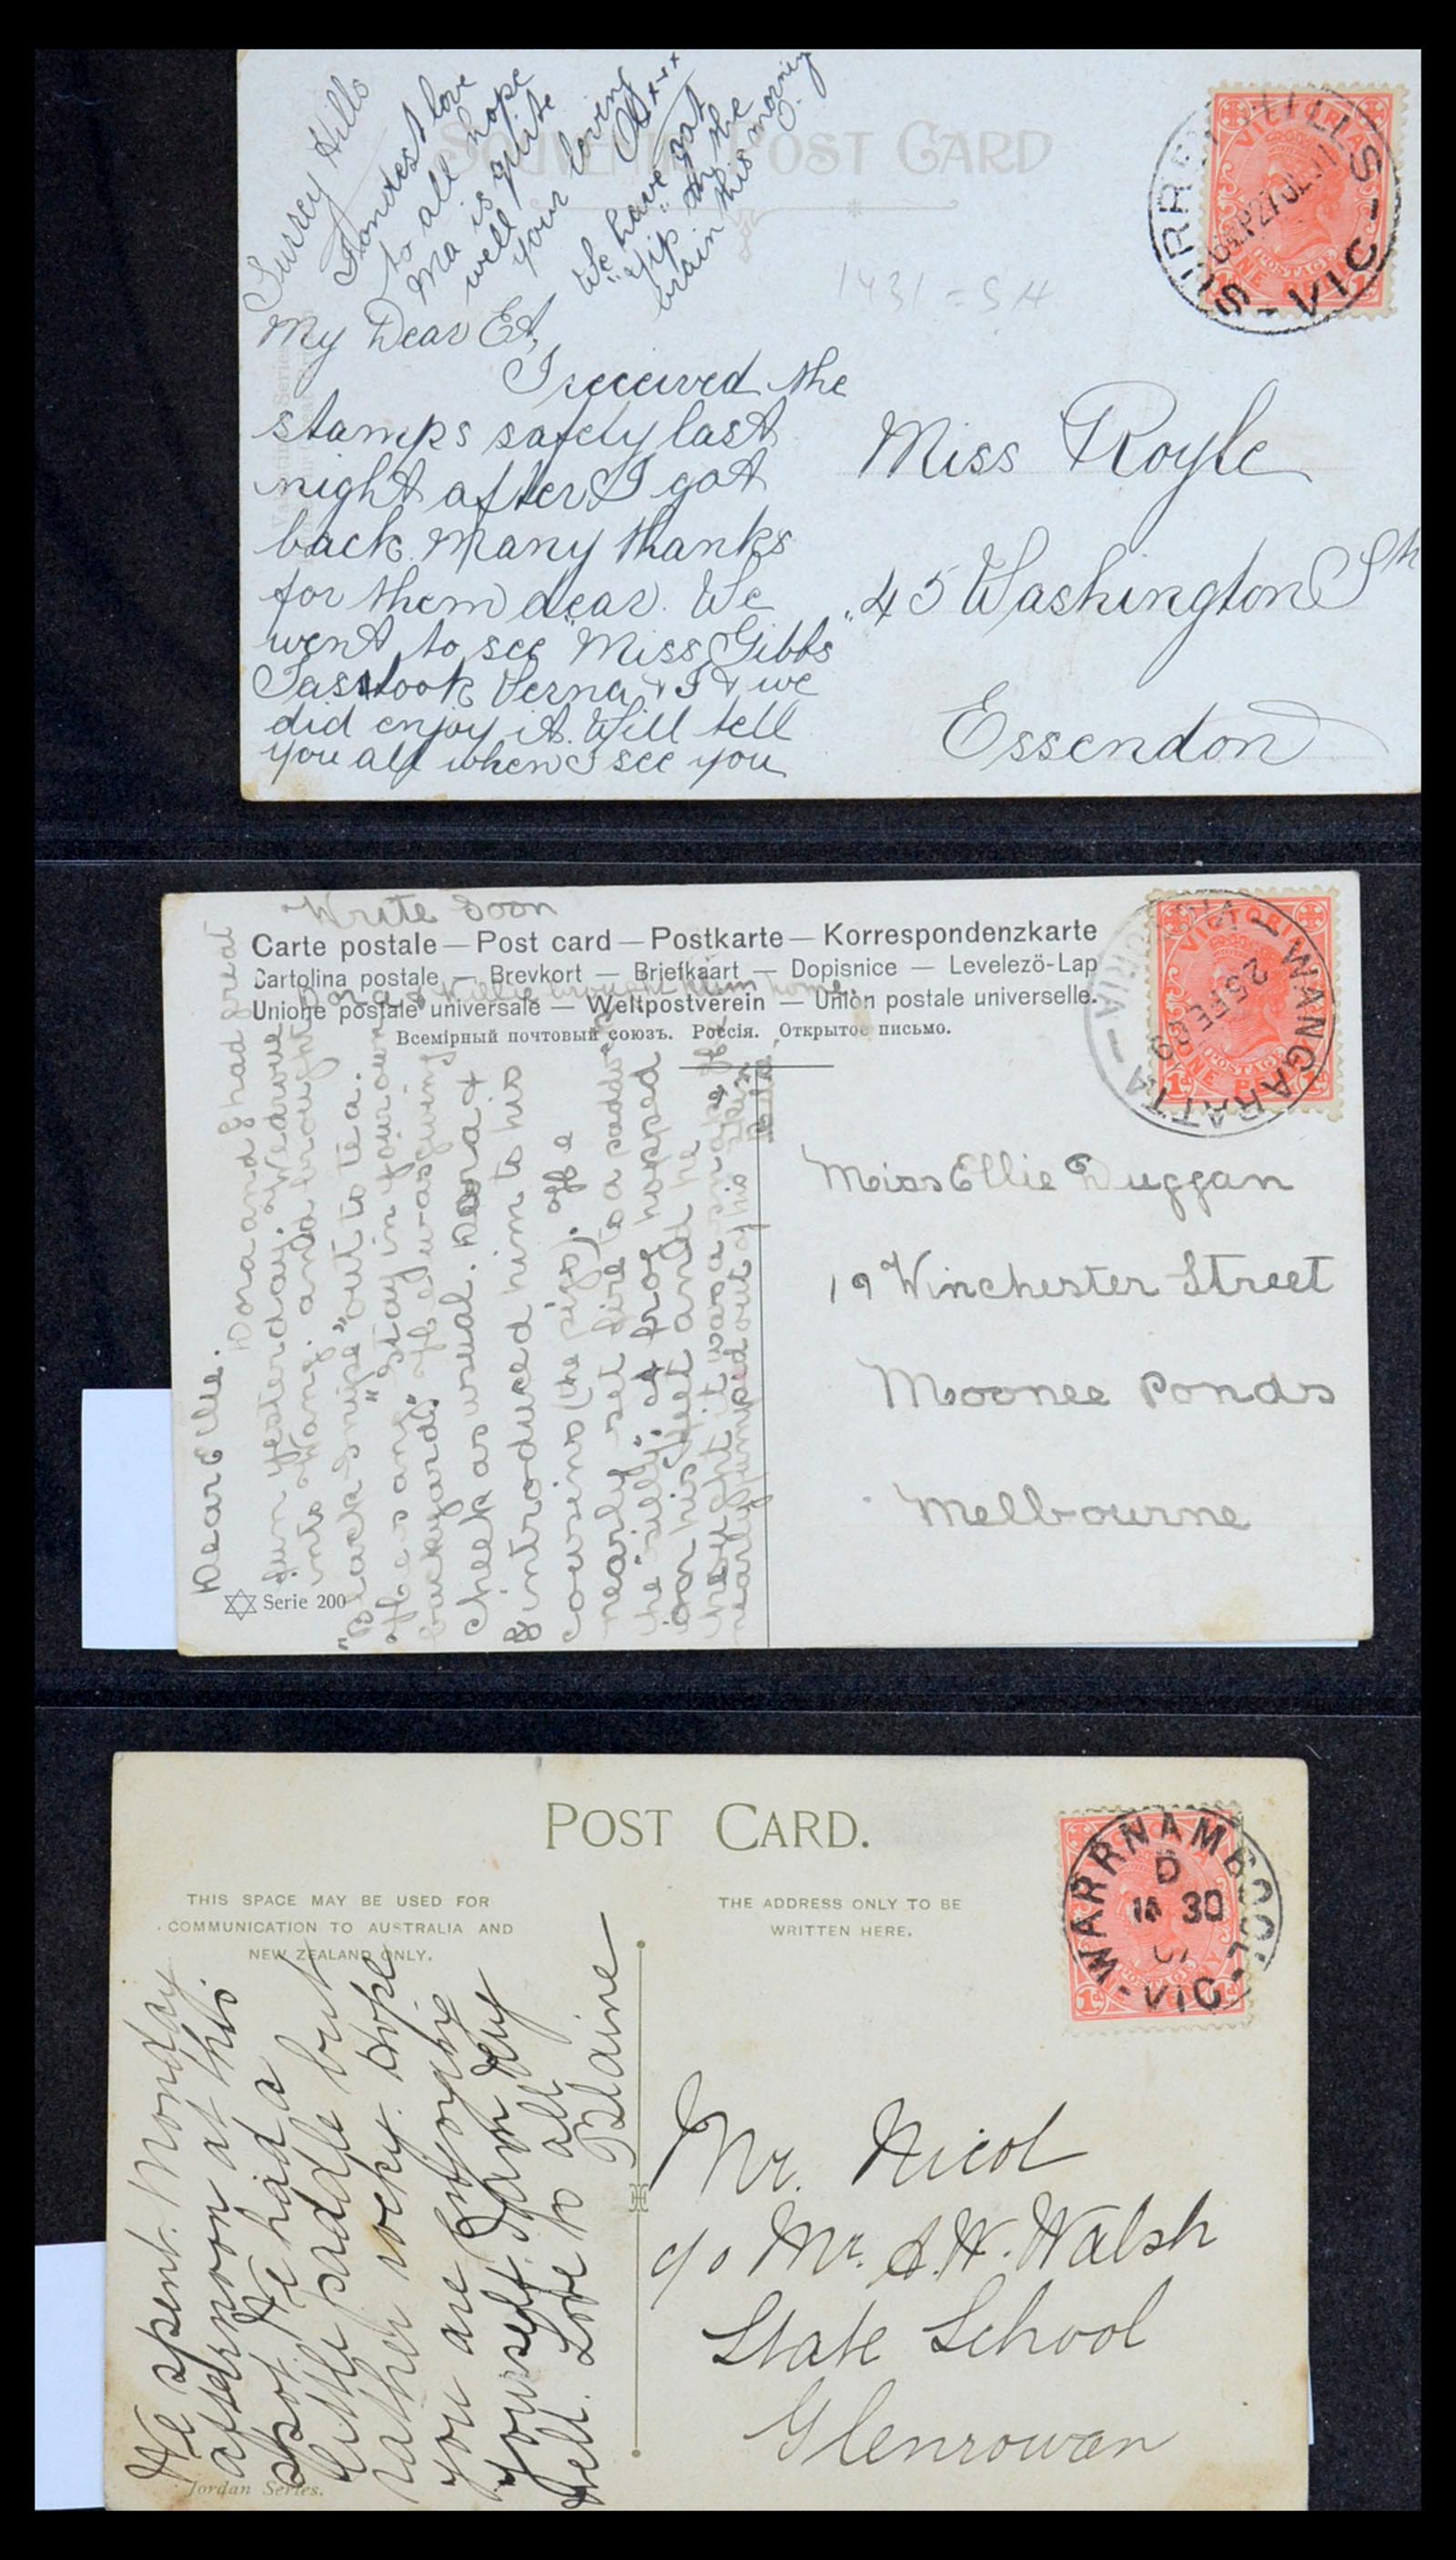 Surrey Hills
Fondest love
to all hope
Ma is quite
well
your loving
xxx
We have got
"yip" in the
brain this morning
SOUVENIR POST CARD
1431 = S H
SURREY HILLS
VIC
VICTORIA
POSTAGE
ONE PENNY
My Dear Et,
I received the
stamps safely last
night after I got
back. Many thanks
for them dear. We
went to see "Miss Gibbs"
Tas took Verna & I & we
did enjoy it. Will tell
you all when I see you
Miss Royle
45 Washington St
Essendon
Write Soon
Carte postale — Post card — Postkarte — Korrespondenzkarte
Cartolina postale — Brevkort — Briefkaart — Dopisnice — Levelezö-Lap
Unione postale universale — Weltpostverein — Union postale universelle.
Всемірный почтовый союзъ. Россія. Открытое письмо.
WANGARATTA
VICTORIA
25 FE
VICTORIA
POSTAGE
ONE PENNY
Dear Ellie.
Dona and I had great
fun yesterday. We drove
into Wang. and brought
"Black Snipe" out to tea.
He sang "Stay in your own
backyard." He was giving
cheek as usual. Dona &
I introduced him to his
cousins (the pigs). He
nearly set fire to a paddock
he silly. A frog hopped
on his feet and he
thought it was a snake. He
nearly jumped out of his skin
Dona & Willie brought him home.
Serie 200
Miss Ellie Duggan
19 Winchester Street
Moonee Ponds
Melbourne
POST CARD.
THIS SPACE MAY BE USED FOR
COMMUNICATION TO AUSTRALIA AND
NEW ZEALAND ONLY.
THE ADDRESS ONLY TO BE
WRITTEN HERE.
WARRNAMBOOL
D
30
VIC
POSTAGE
We spent Monday
afternoon at this
spot. We had a
little paddle but
rather rocky. Hope
you are enjoying
yourself. I am very
well. Love to all
Blaine
Jordan Series.
Mr. Nicol
c/o Mr. A. W. Walsh
State School
Glenrowan